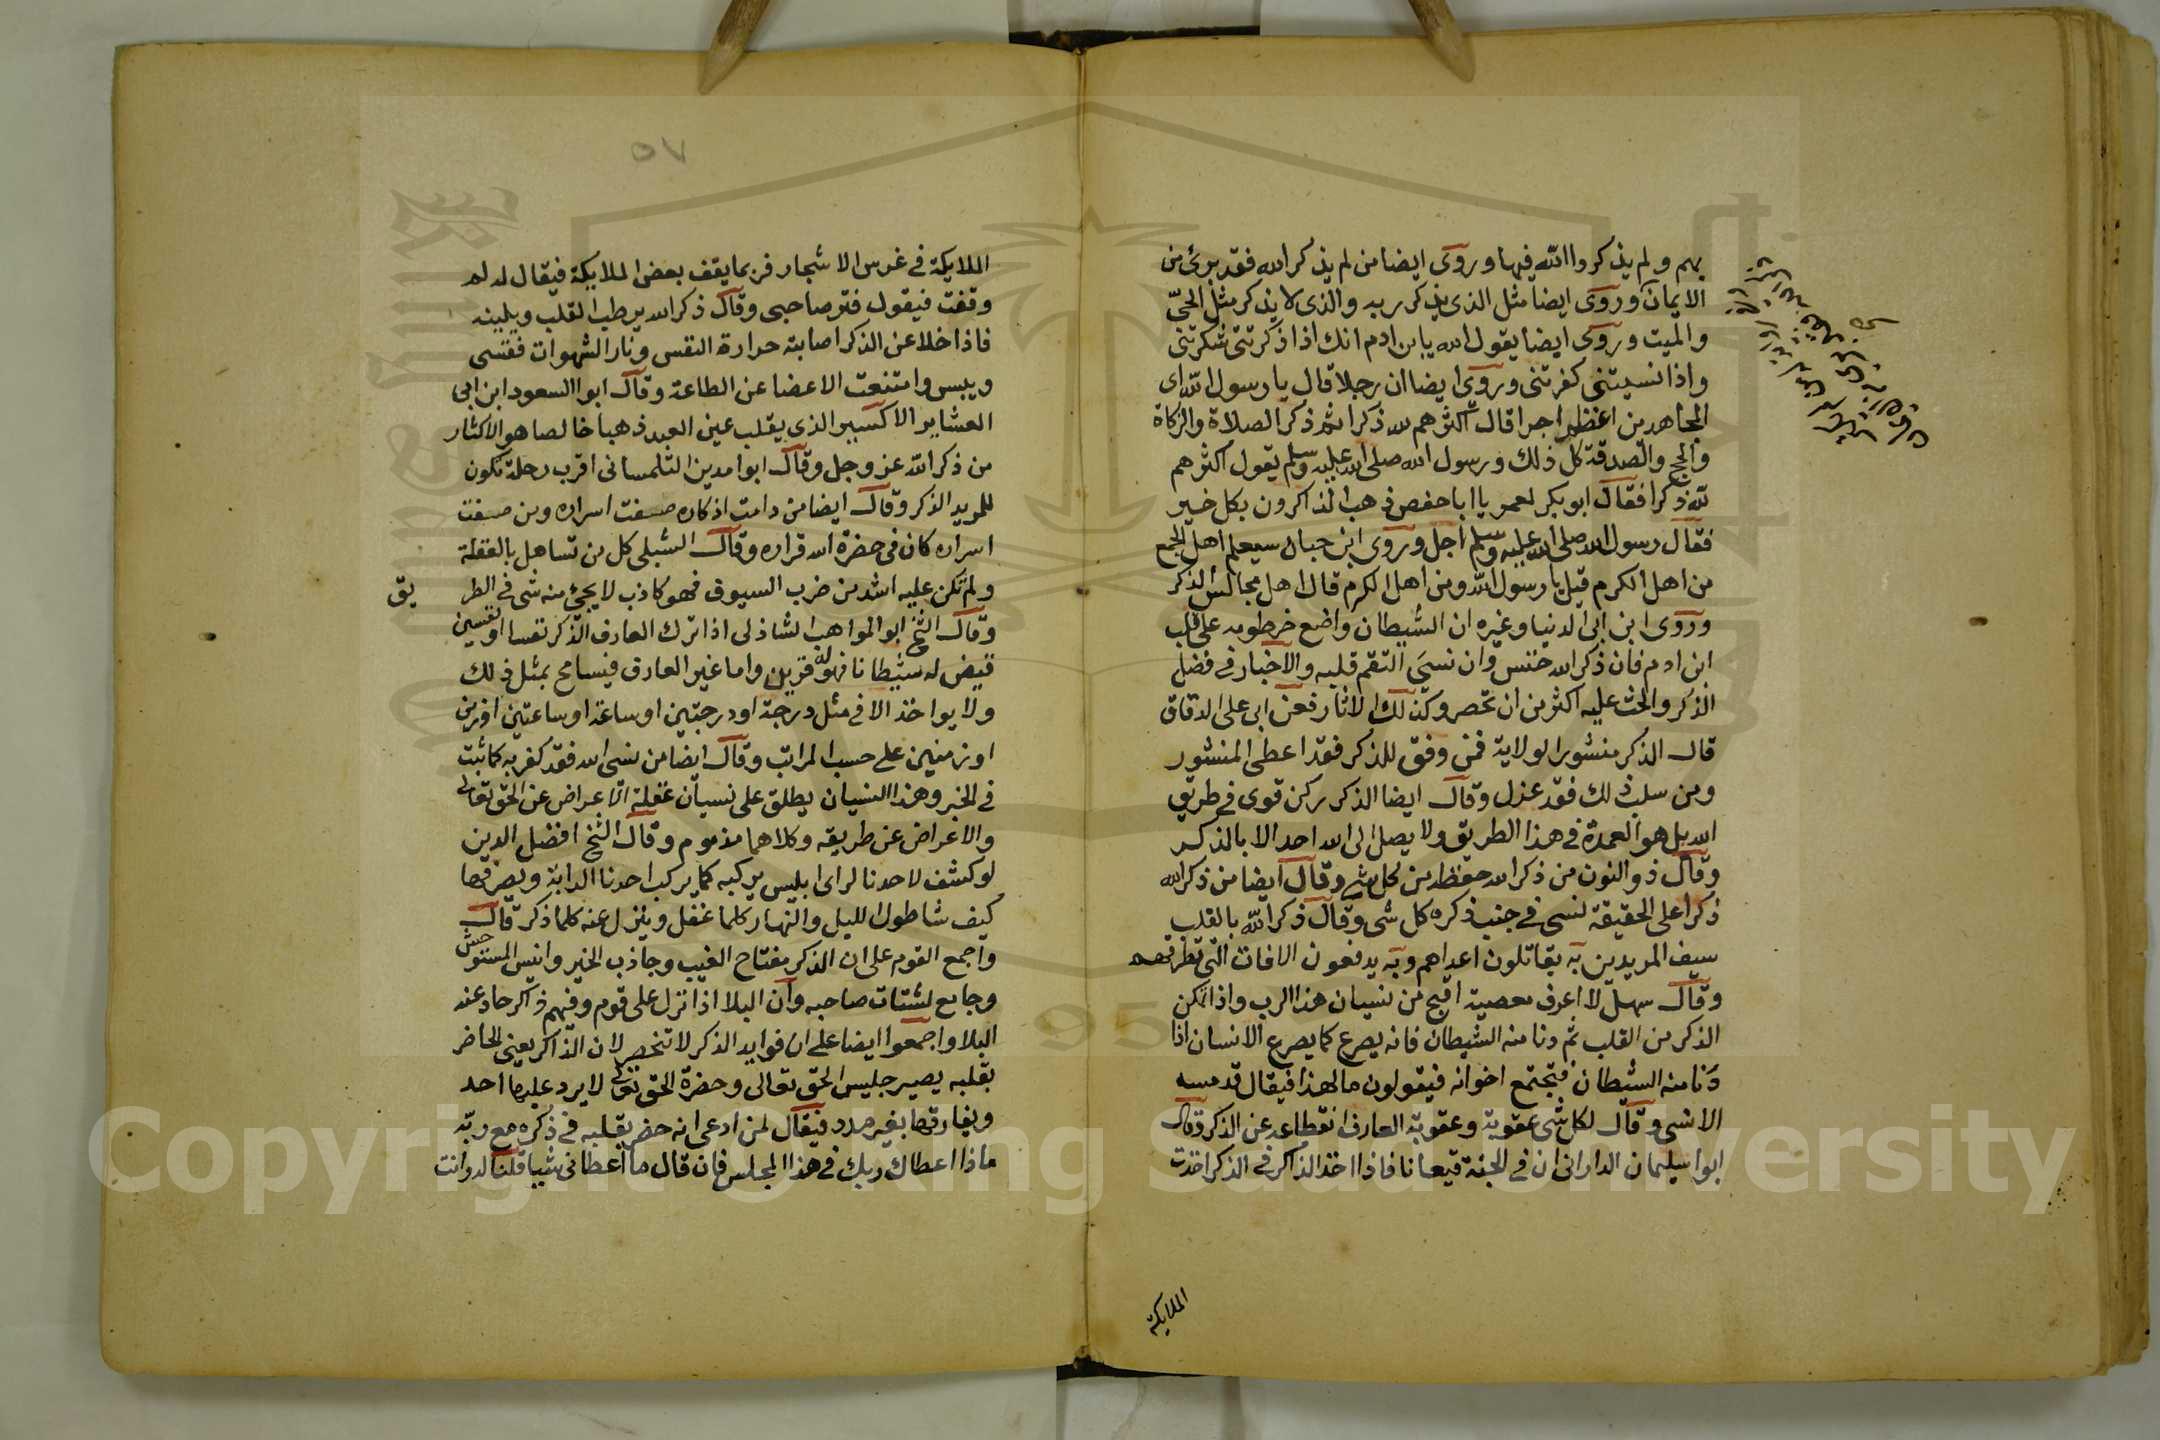 بهم ولم يذكروا الله فيها وروى ايضا من لم يذكر الله فقد برئ من
الايمان وروى ايضا مثل الذى يذكر ربه والذى لا يذكر مثل الحىّ
والميت وروى ايضا يقول الله يا بن ادم انك اذا ذكرتنى شكرتنى
واذا نسيتنى كفرتنى وروى ايضا ان رجلا قال يا رسول الله اى
المجاهدين اعظم اجرا قال اكثرهم لله ذكرا ثم ذكر الصلاة والزكاة
والحج والصدقة كل ذلك ورسول الله صلى الله عليه وسلم يقول اكثرهم
لله ذكرا فقال ابو بكر لعمر يا ابا حفص ذهب الذاكرون بكل خير
فقال رسول الله صلى الله عليه وسلم اجل وروى ابن حبان سيعلم اهل الجمع
من اهل الكرم قيل يا رسول الله ومن اهل الكرم قال اهل مجالس الذكر
وروى ابن ابى الدنيا وغيره ان الشيطان واضع خرطومه على قلب
ابن ادم فان ذكر الله خنس وان نسى التقم قلبه والاخبار فى فضل
الذكر والحث عليه اكثر من ان تحصر وكذلك الاثار فعن ابى على الدقاق
قال الذكر منشور الولاية فمن وفق للذكر فقد اعطى المنشور
ومن سلب ذلك فقد عزل وقال ايضا الذكر ركن قوى فى طريق
الله بل هو العمدة فى هذا الطريق ولا يصل الى الله احد الا بالذكر
وقال ذو النون من ذكر الله حفظه من كل شى وقال ايضا من ذكر الله
ذكرا على الحقيقة نسى فى جنب ذكره كل شى وقال ذكر الله بالقلب
سيف المريدين به يقاتلون اعداهم وبه يدفعون الافات التى تطرقهم
وقال سهل لا اعرف معصية اقبح من نسيان هذا الرب واذا تمكن
الذكر من القلب ثم دنا منه الشيطان فانه يصرع كما يصرع الانسان اذا
دنا منه الشيطان فتجتمع اخوانه فيقولون ما لهذا فيقال قد مسه
الانسى وقال لكل شى عقوبة وعقوبة العارف انقطاعه عن الذكر وقال
ابوا سليمان الدارانى ان فى الجنة قيعانا فاذا اخذ الذاكر فى الذكر اخذت
الملايكة
٥٧
الملايكة فى غرس الاشجار فربما يقف بعض الملايكة فيقال له لم
وقفت فيقول فتر صاحبى وقال ذكر الله يرطب القلب ويلينه
فاذا خلا عن الذكر اصابته حرارة النفس ونار الشهوات فقسى
ويبس وامتنعت الاعضا عن الطاعة وقال ابوا السعود ابن ابى
العشاير الاكسير الذى يقلب عين العبد ذهبا خالصا هو الاكثار
من ذكر الله عز وجل وقال ابوا مدين التلمسانى اقرب رحلة تكون
للمريد الذكر وقال ايضا من دامت اذكاره صفت اسراره ومن صفت
اسراره كان فى حضرة الله قراره وقال الشبلى كل من تساهل بالغفلة
ولم تكن عليه اشد من ضرب السيوف فهو كاذب لا يجئ منه شى فى الطر
يق
وقال الشيخ ابو المواهب الشاذلى اذا ترك العارف الذكر نفسا او نفسين
قيض له شيطانا فهو له قرين واما غير العارف فيسامح بمثل ذلك
ولا يواخذ الا فى مثل درجة او درجتين او ساعة او ساعتين او زمن
او زمنين على حسب المراتب وقال ايضا من نسى الله فقد كفر به كما ثبت
فى الخبر وهذا النسيان يطلق على نسيان غفلة الاعراض عن الحق تعالى
والاعراض عن طريقه وكلاهما مذموم وقال الشيخ افضل الدين
لو كشف لاحدنا لراى ابليس يركبه كما يركب احدنا الدابة ويصرفها
كيف شا طول الليل والنهار كلما غفل وينزل عنه كلما ذكر قال
واجمع القوم على ان الذكر مفتاح الغيب وجاذب الخير وانيس المستوحش
وجامع لشتات صاحبه وان البلا اذا نزل على قوم وفيهم ذاكر حاد عنه
البلا واجمعوا ايضا على ان فوايد الذكر لا تنحصر لان الذاكر يعنى الحاضر
بقلبه يصير جليس الحق تعالى وحضرة الحق تعالى لا يرد عليها احد
ويفارقها بغير مدد فيقال لمن ادعى انه حضر بقلبه فى ذكره مع ربّه
ماذا اعطاك ربك فى هذا المجلس فان قال ما اعطانى شيا قلنا له وانت
Copyright © King Saud University